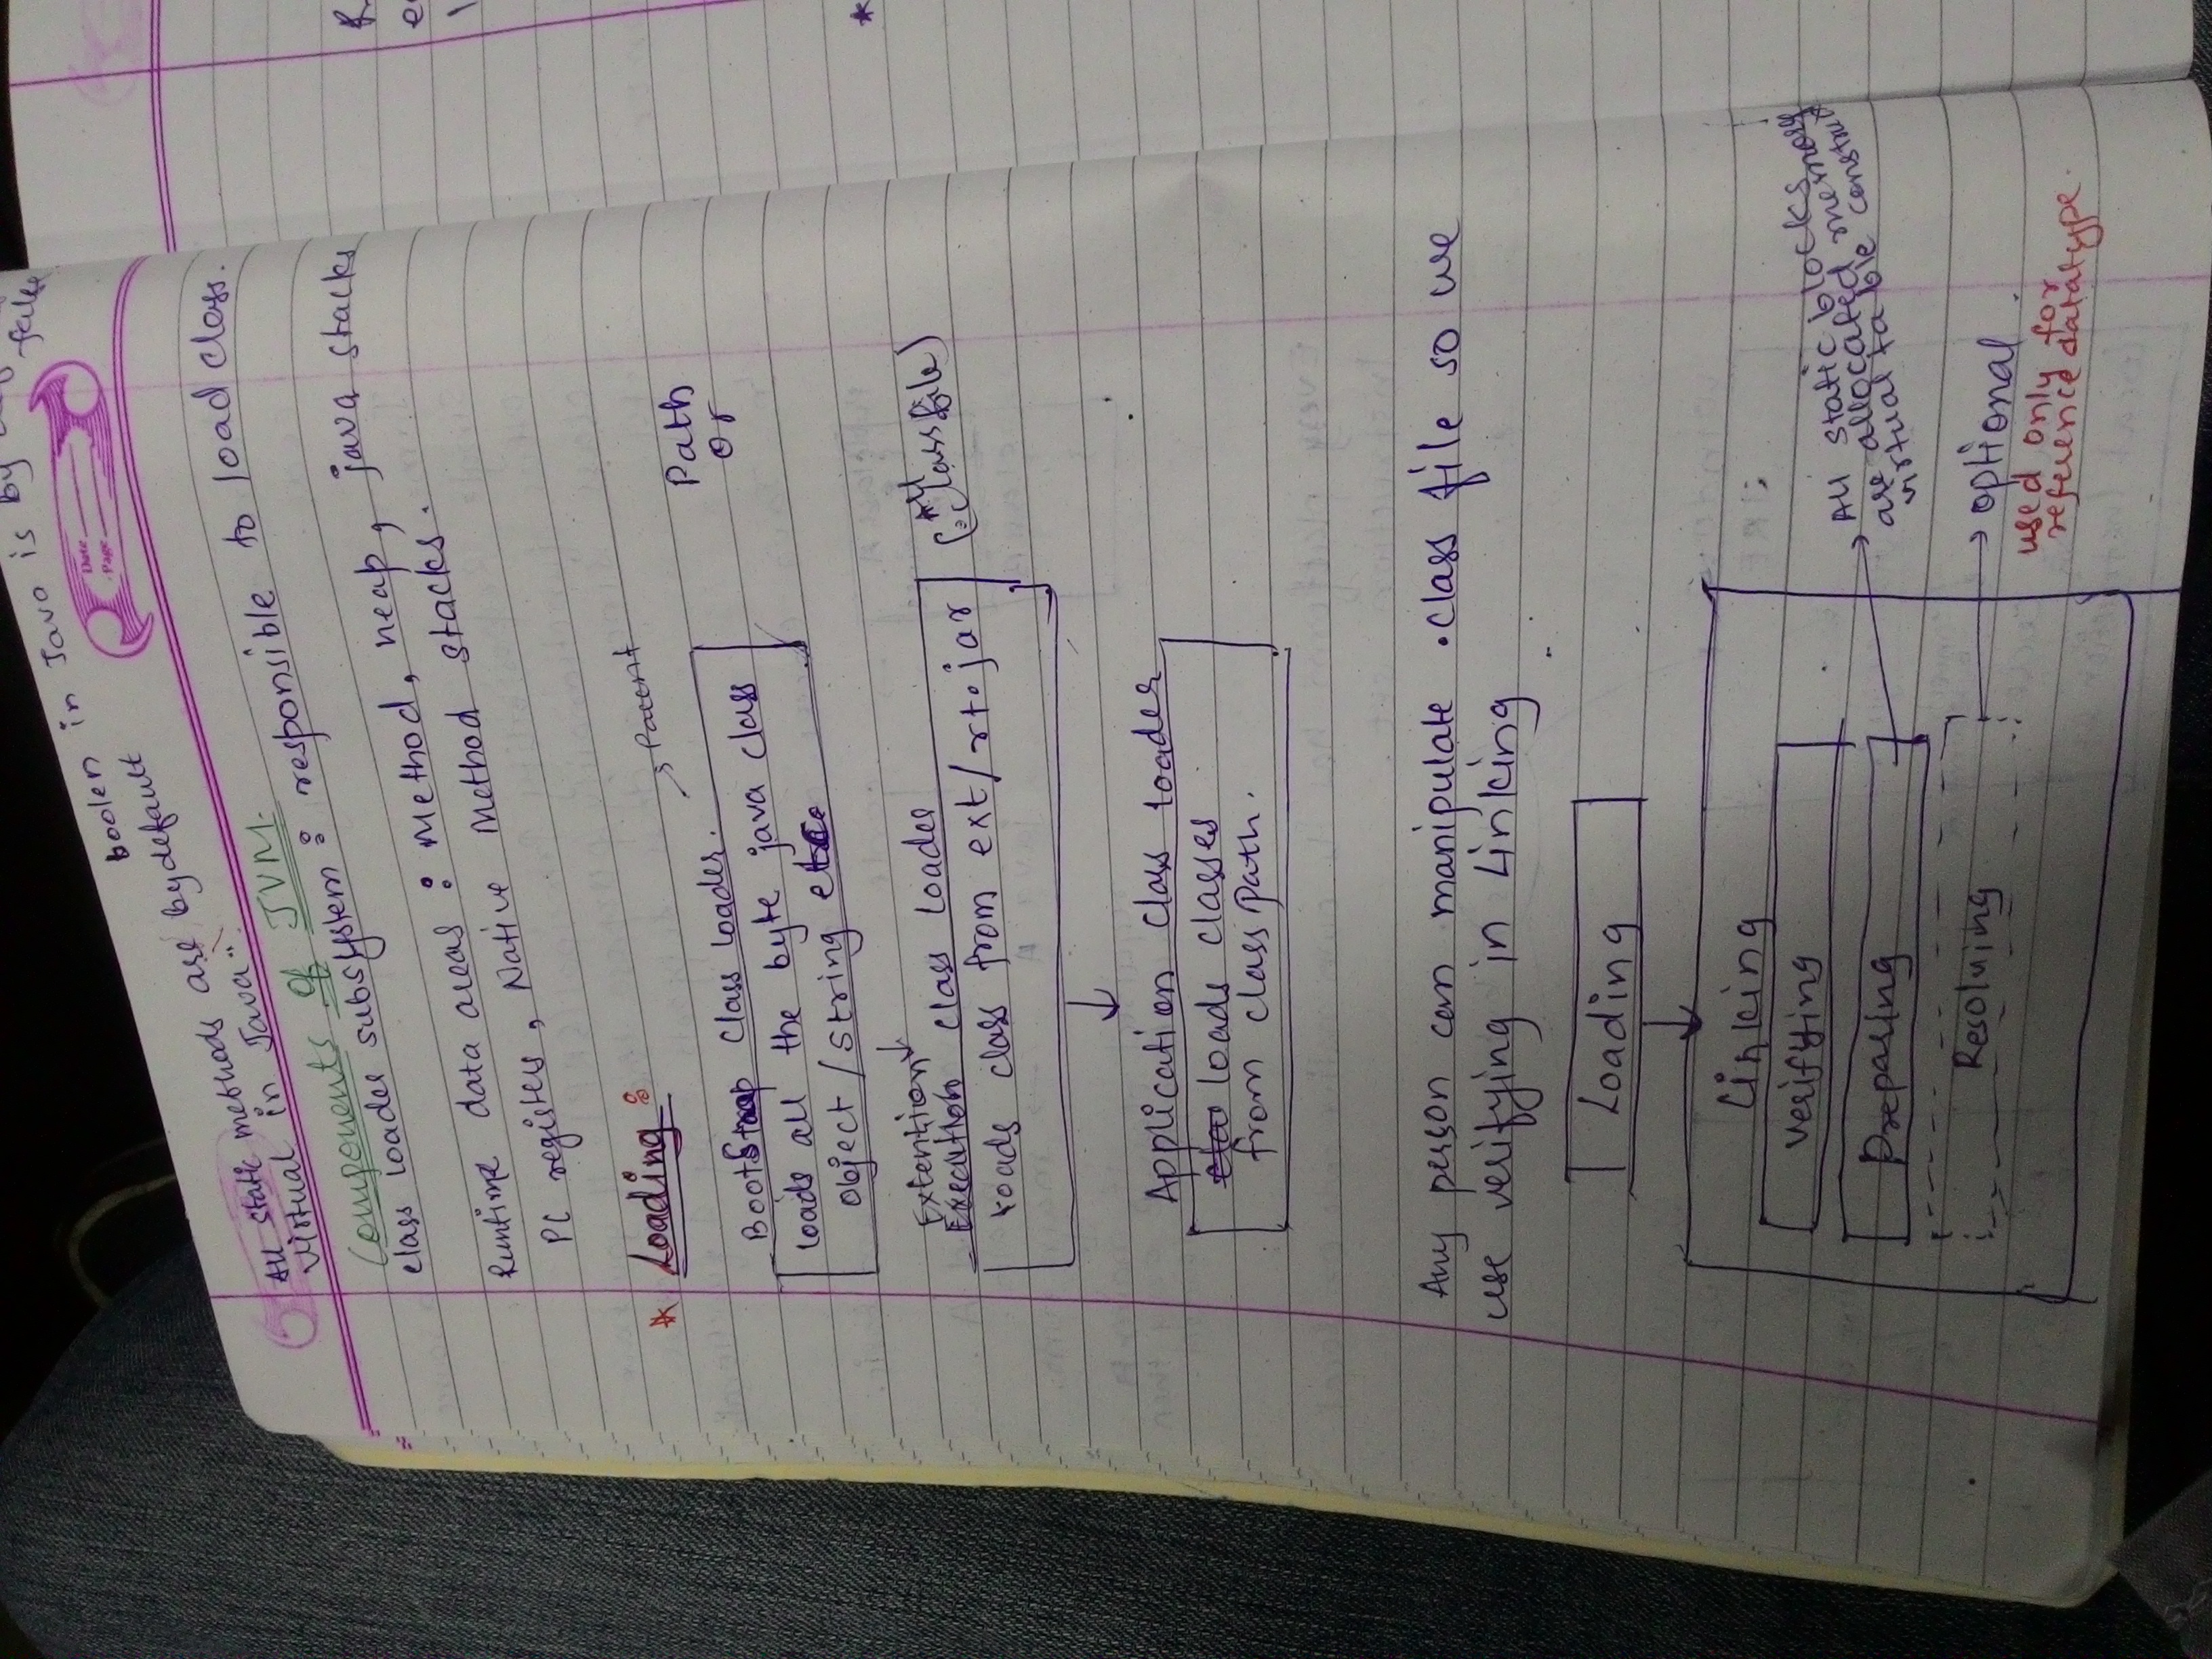 boolen in Java is by
false
Date
Page
All static methods are bydefault
virtual in Java
Components of JVM.
class loader subsystem : responsible to load class.
Runtime data areas : Method, heap, java stacks
PC registers, Native Method stacks.
* Loading :
→ Parent
Bootstrap Class loader.
loads all the byte java class
object / string etc.
Path
or
Extention
Execution class loader
loads class from ext/rt.jar
(All
.class file)
Application class loader
clas loads classes
from class path.
Any person can manipulate .class file so we
use verifying in Linking
Loading
Linking
Verifying
Preparing
→ All static blocks
are allocated memory
virtual table construct
Resolving
→ optional.
used only for
reference datatype.